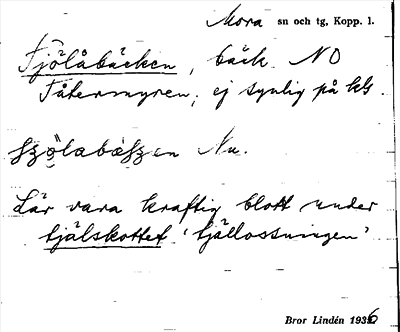 Mora sn och tg, Kopp. l.
Tjölåbäcken, bäck NO
Tåtermyren, ej synlig på kb.
Nu.
Lär vara kraftig blott under
tjälskottet 'tjällossningen'
Bror Lindén 1936